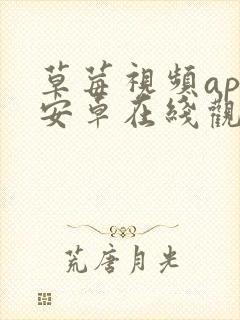 草莓視頻ap
安草在綫觀
荒唐月光